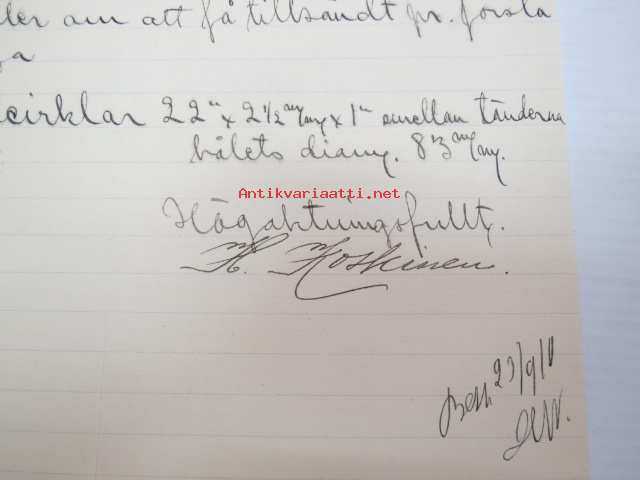 om att få tillsändt pr. första
cirklar 22" x 2½ m/m x 1" emellan tänderna
hålets diam. 83 m/m.
Antikvariaatti.net
Högaktningsfullt,
H. Koskinen.
23/9/10